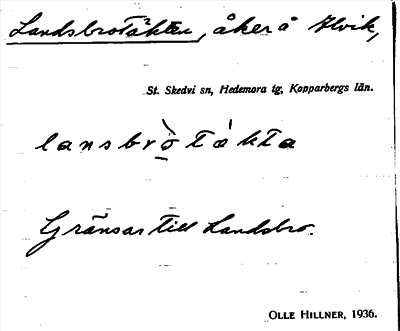 Landsbrotäkten, åker å Alvik,
St. Skedvi sn, Hedemora tg, Kopparbergs län.
lansbrò̠tákta
Gränsar till Landsbro.
OLLE HILLNER, 1936.